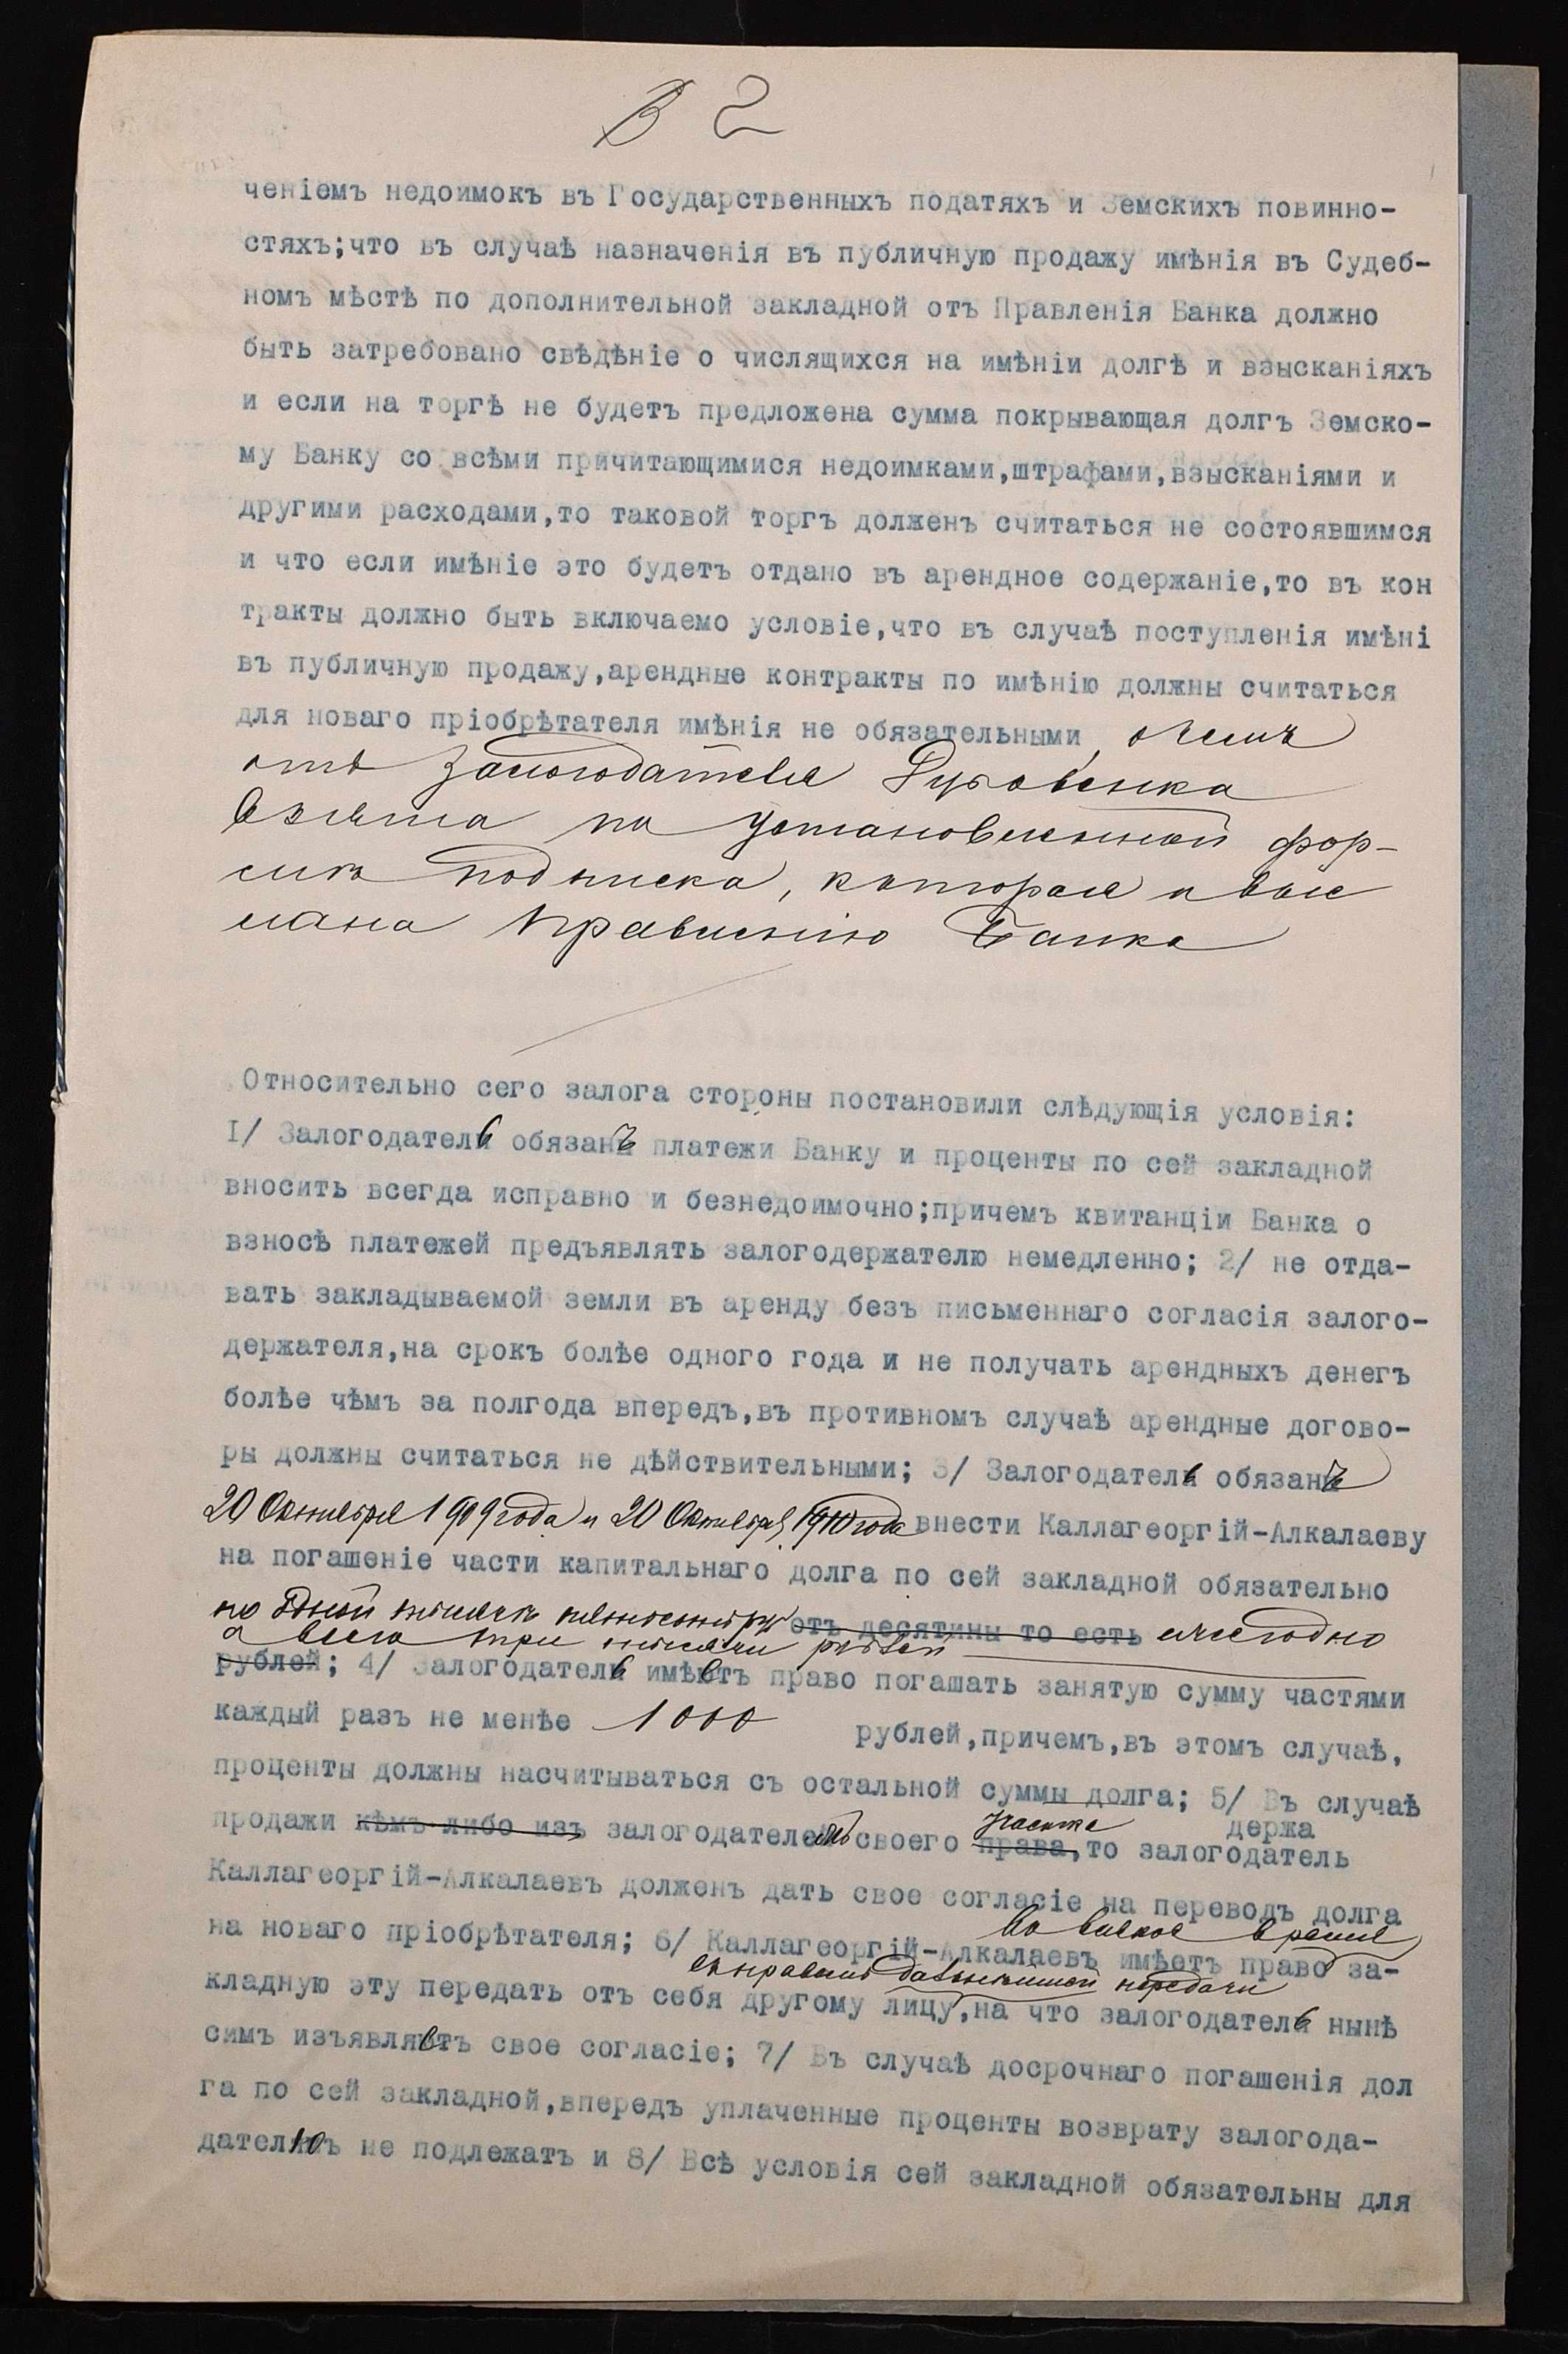 В 2
ченіемъ недоимокъ въ Государственныхъ податяхъ и Земскихъ повинно-
стяхъ;что въ случаѣ назначенія въ публичную продажу имѣнія въ Судеб-
номъ мѣстѣ по дополнительной закладной отъ Правленія Банка должно
быть затребовано свѣдѣніе о числящихся на имѣніи долгѣ и взысканіяхъ
и если на торгѣ не будетъ предложена сумма покрывающая долгъ Земско-
му Банку со всѣми причитающимися недоимками,штрафами,взысканіями и
другими расходами,то таковой торгъ долженъ считаться не состоявшимся
и что если имѣніе это будетъ отдано въ арендное содержаніе,то въ кон
тракты должно быть включаемо условіе,что въ случаѣ поступленія имѣні
въ публичную продажу,арендные контракты по имѣнію должны считаться
для новаго пріобрѣтателя имѣнія не обязательными, о чемъ
отъ залогодателя
взята по установленной фор-
мѣ подписка, которая и выс
лана Правленію Банка
Относительно сего залога стороны постановили слѣдующія условія:
I/ Залогодатель обязанъ платежи Банку и проценты по сей закладной
вносить всегда исправно и безнедоимочно;причемъ квитанціи Банка о
взносѣ платежей предъявлять залогодержателю немедленно; 2/ не отда-
вать закладываемой земли въ аренду безъ письменнаго согласія залого-
держателя,на срокъ болѣе одного года и не получать арендныхъ денегъ
болѣе чѣмъ за полгода впередъ,въ противномъ случаѣ арендные догово-
ры должны считаться не дѣйствительными; 3/ Залогодатель обязанъ
20 Октября 1909 года и 20 Октября 1910 года внести Каллагеоргій-Алкалаеву
на погашеніе части капитальнаго долга по сей закладной обязательно
по одной тысячѣ пятисотъ ру отъ десятины то есть ежегодно
а всего три тысячи рублей
рублей; 4/ Залогодатель имѣетъ право погашать занятую сумму частями
каждый разъ не менѣе 1000 рублей,причемъ,въ этомъ случаѣ,
проценты должны насчитываться съ остальной суммы долга; 5/ Въ случаѣ
участка держа
продажи кѣмъ-либо изъ залогодателемъ своего права,то залогодатель
Каллагеоргій-Алкалаевъ долженъ дать свое согласіе на переводъ долга
во всякое время
на новаго пріобрѣтателя; 6/ Каллагеоргій-Алкалаевъ имѣетъ право за-
съ правомъ дальнѣйшей передачи
кладную эту передать отъ себя другому лицу,на что залогодатель нынѣ
симъ изъявляетъ свое согласіе; 7/ Въ случаѣ досрочнаго погашенія дол
га по сей закладной,впередъ уплаченные проценты возврату залогода-
дателю не подлежатъ и 8/ Всѣ условія сей закладной обязательны для